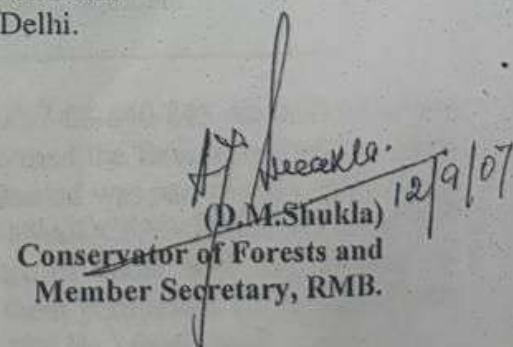 Delhi.
Shukla.
12/9/07
(D.M.Shukla)
Conservator of Forests and
Member Secretary, RMB.